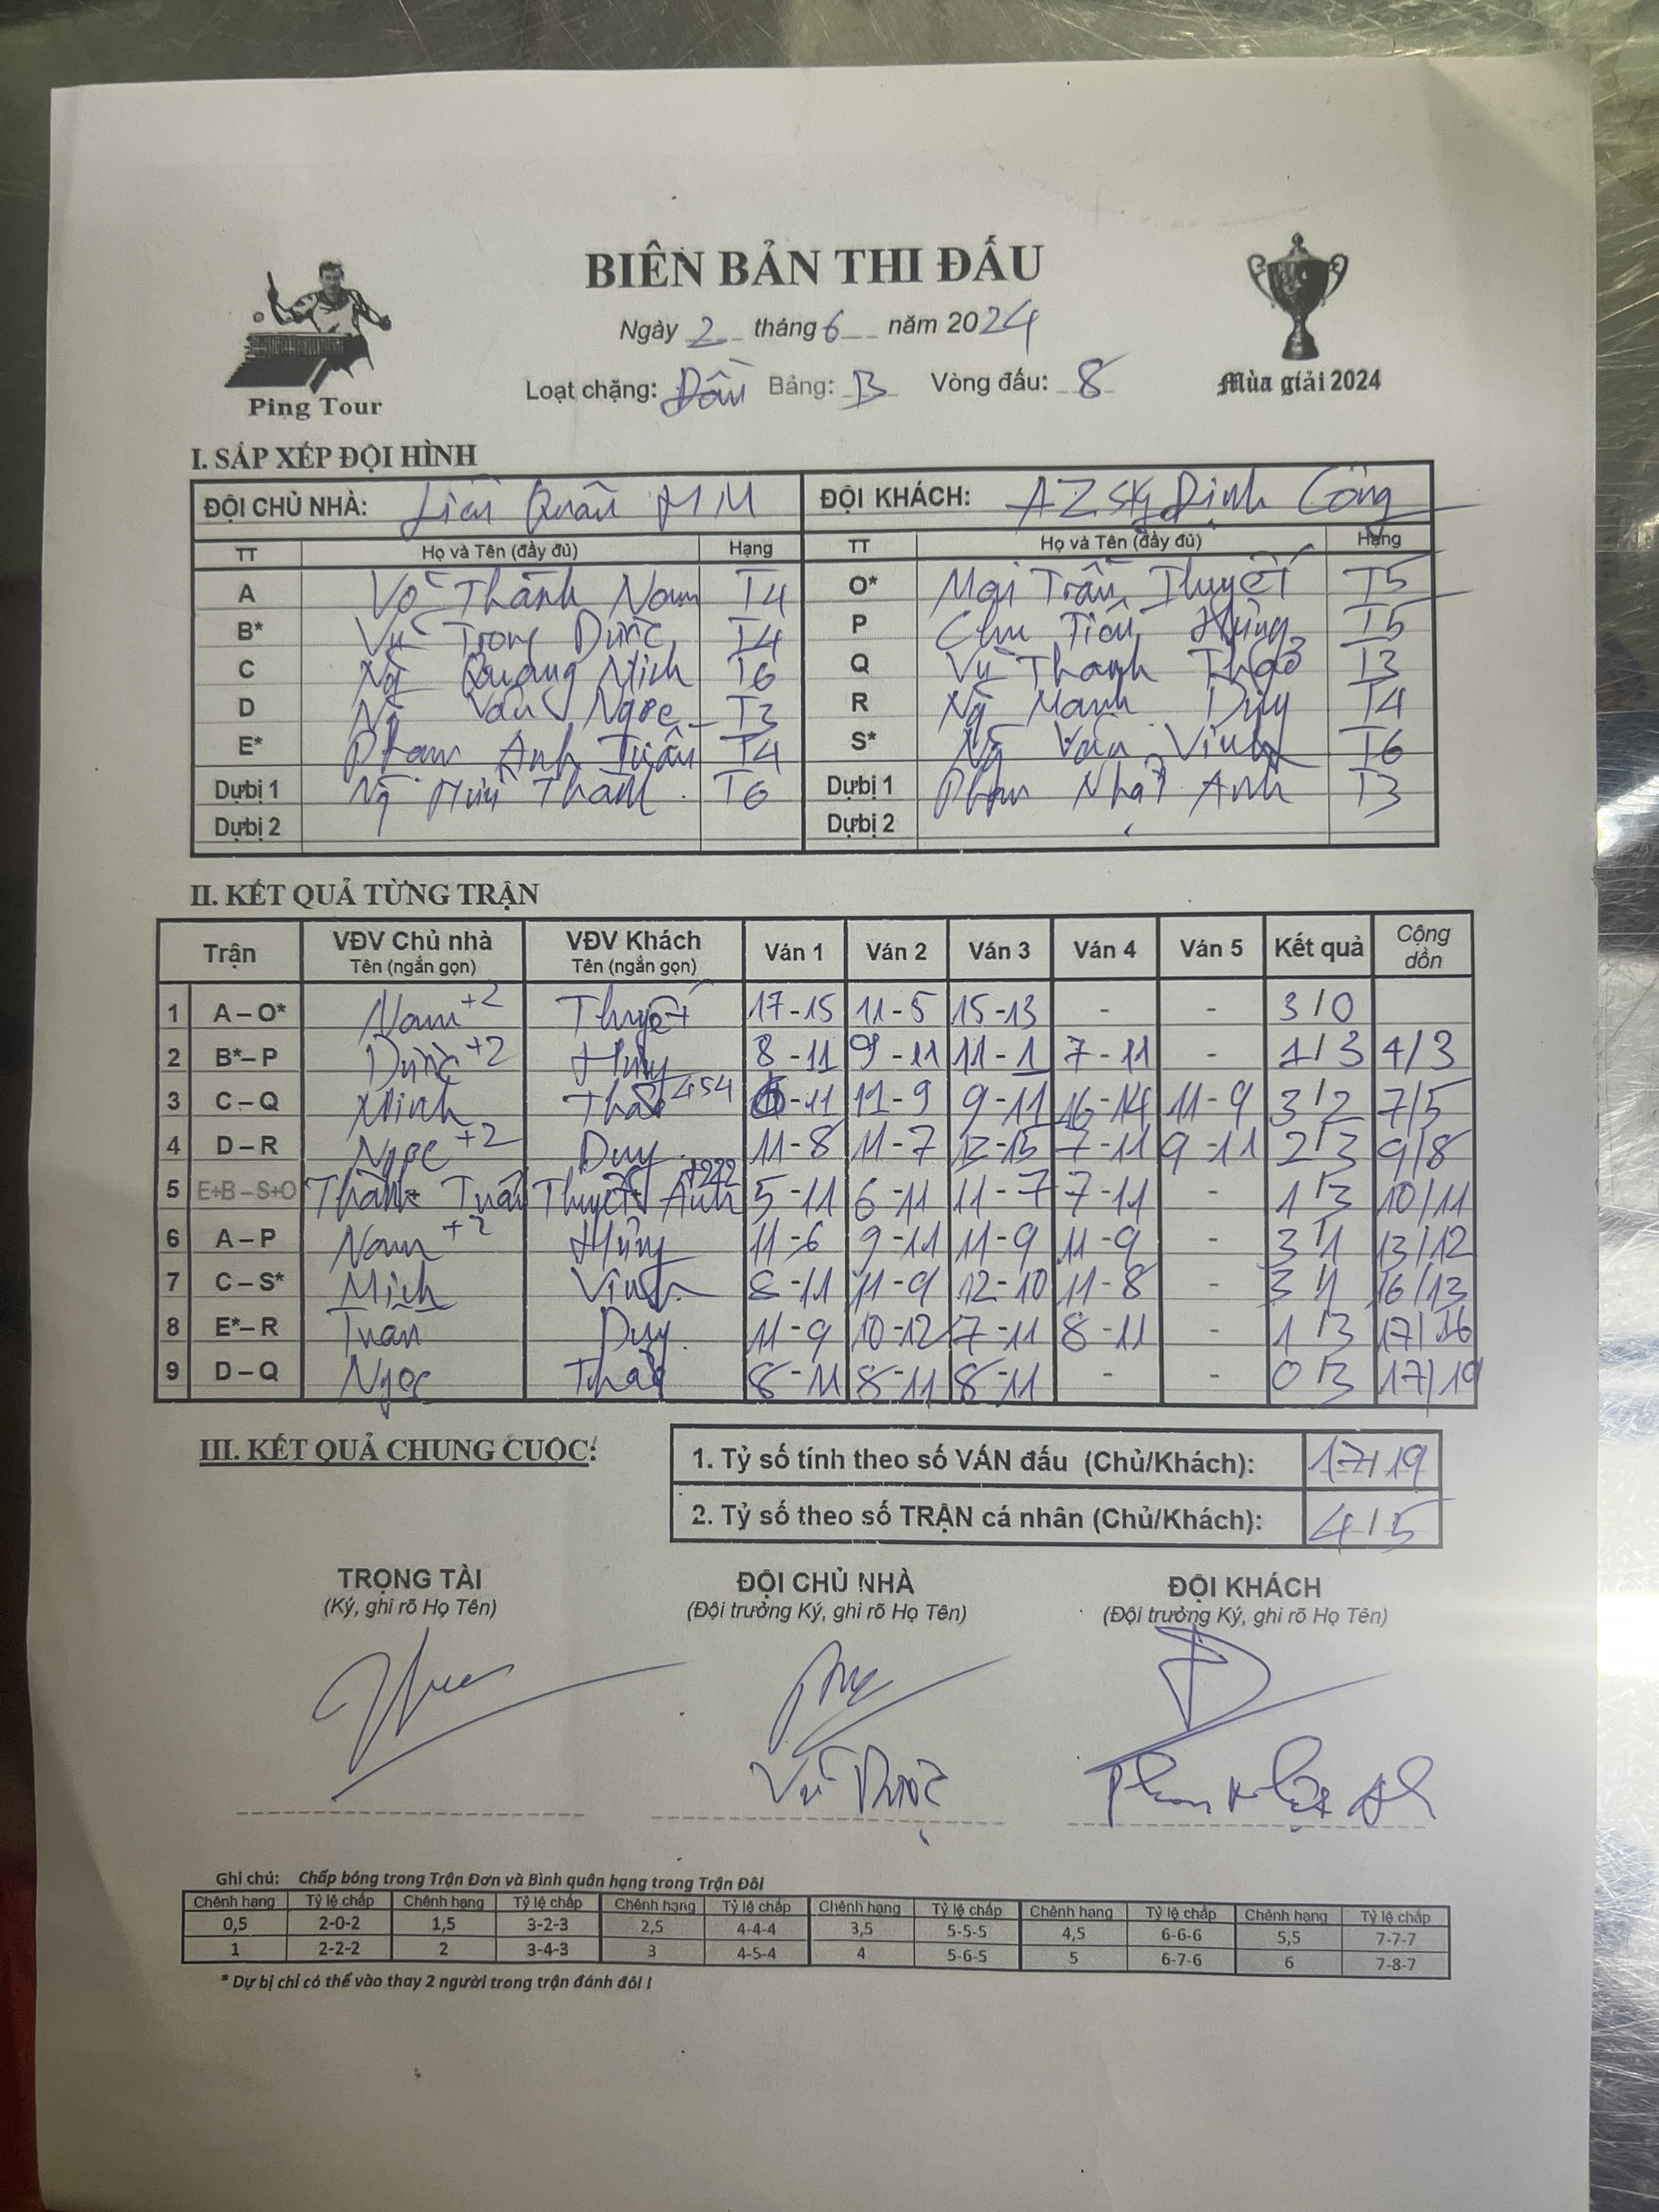 BIÊN BẢN THI ĐẤU
Ngày 2 tháng 6 năm 2024
Loạt chặng: Đầu Bảng: B Vòng đấu: 8
Ping Tour
Mùa giải 2024
I. SẮP XẾP ĐỘI HÌNH
ĐỘI CHỦ NHÀ: Liên Quân MM ĐỘI KHÁCH: AZ Sky Định Công
TT Họ và Tên (đầy đủ) Hạng TT Họ và Tên (đầy đủ) Hạng
A Võ Thành Nam T4 O* Mai Trần Thuyết T5
B* Vũ Trọng Dược T4 P Chu Tiến Hùng T5
C Ng Quang Minh T6 Q Vũ Thanh Thảo T3
D Ng Văn Ngọc T3 R Ng Mạnh Duy T4
E* Phạm Anh Tuấn T4 S* Ng Văn Vinh T6
Dự bị 1 Ng Hữu Thành T6 Dự bị 1 Phạm Nhật Anh T3
Dự bị 2 Dự bị 2
II. KẾT QUẢ TỪNG TRẬN
Trận VĐV Chủ nhà VĐV Khách Ván 1 Ván 2 Ván 3 Ván 4 Ván 5 Kết quả Cộng dồn
Tên (ngắn gọn) Tên (ngắn gọn)
1 A – O* Nam +2 Thuyết 17-15 11-5 15-13 - - 3/0
2 B* – P Dược +2 Hùng 8-11 9-11 11-1 7-11 - 1/3 4/3
3 C – Q Minh Thảo 454 6-11 11-9 9-11 16-14 11-9 3/2 7/5
4 D – R Ngọc +2 Duy 11-8 11-7 13-15 7-11 9-11 2/3 9/8
5 E+B – S+O Thành+Tuấn Thuyết+Anh +222 5-11 6-11 11-7 7-11 - 1/3 10/11
6 A – P Nam +2 Hùng 11-6 9-11 11-9 11-9 - 3/1 13/12
7 C – S* Minh Vinh 8-11 11-9 12-10 11-8 - 3/1 16/13
8 E* – R Tuấn Duy 11-9 10-12 7-11 8-11 - 1/3 17/16
9 D – Q Ngọc Thảo 8-11 8-11 8-11 - - 0/3 17/19
III. KẾT QUẢ CHUNG CUỘC:
1. Tỷ số tính theo số VÁN đấu (Chủ/Khách): 17/19
2. Tỷ số theo số TRẬN cá nhân (Chủ/Khách): 4/5
TRỌNG TÀI ĐỘI CHỦ NHÀ ĐỘI KHÁCH
(Ký, ghi rõ Họ Tên) (Đội trưởng Ký, ghi rõ Họ Tên) (Đội trưởng Ký, ghi rõ Họ Tên)
Vũ Dược Phạm Nhật Anh
Ghi chú: Chấp bóng trong Trận Đơn và Bình quân hạng trong Trận Đôi
Chênh hạng Tỷ lệ chấp Chênh hạng Tỷ lệ chấp Chênh hạng Tỷ lệ chấp Chênh hạng Tỷ lệ chấp Chênh hạng Tỷ lệ chấp Chênh hạng Tỷ lệ chấp
0,5 2-0-2 1,5 3-2-3 2,5 4-4-4 3,5 5-5-5 4,5 6-6-6 5,5 7-7-7
1 2-2-2 2 3-4-3 3 4-5-4 4 5-6-5 5 6-7-6 6 7-8-7
* Dự bị chỉ có thể vào thay 2 người trong trận đánh đôi !